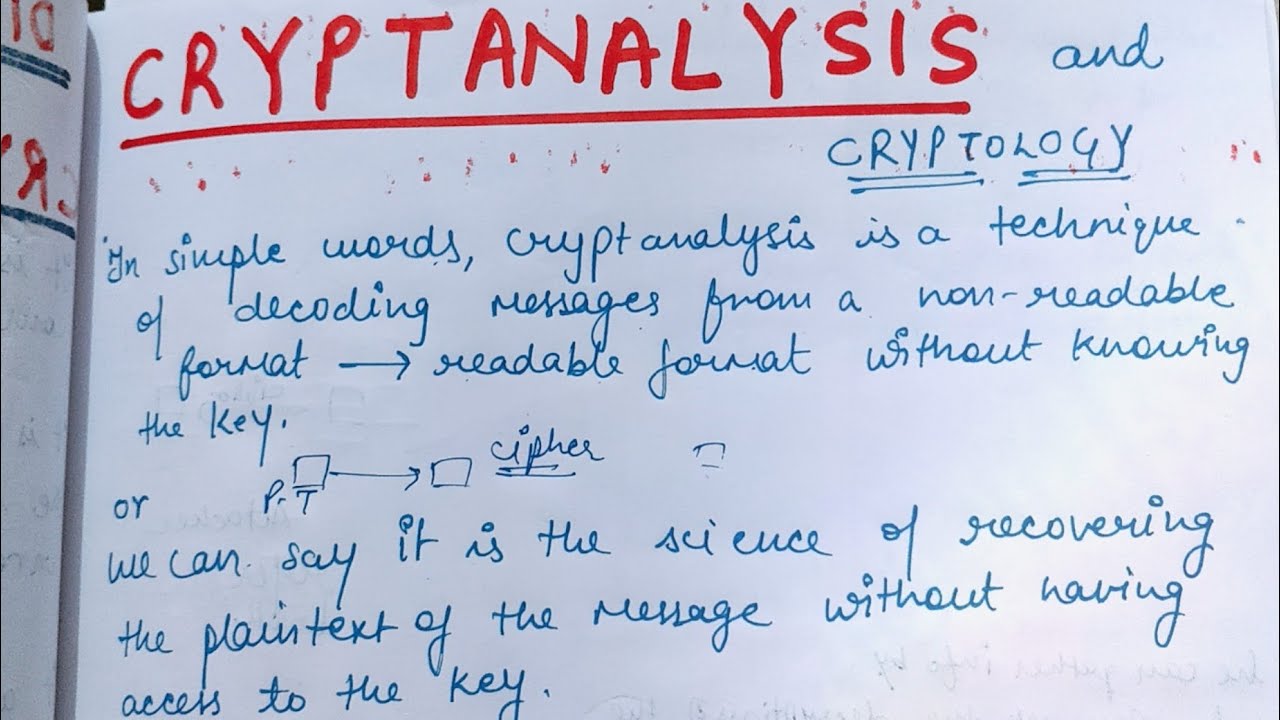 CRYPTANALYSIS and
CRYPTOLOGY
In simple words, cryptanalysis is a technique
of decoding messages from a non-readable
format → readable format without knowing
the key.
cipher
P.T
or
we can say it is the science of recovering
the plaintext of the message without having
access to the key.